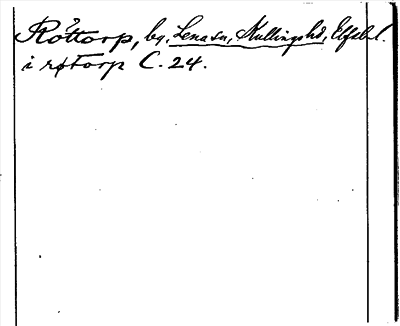 Rottorp, by, Lena sn, Kullings hd, Elfsb. l.
i røtorp C. 24.